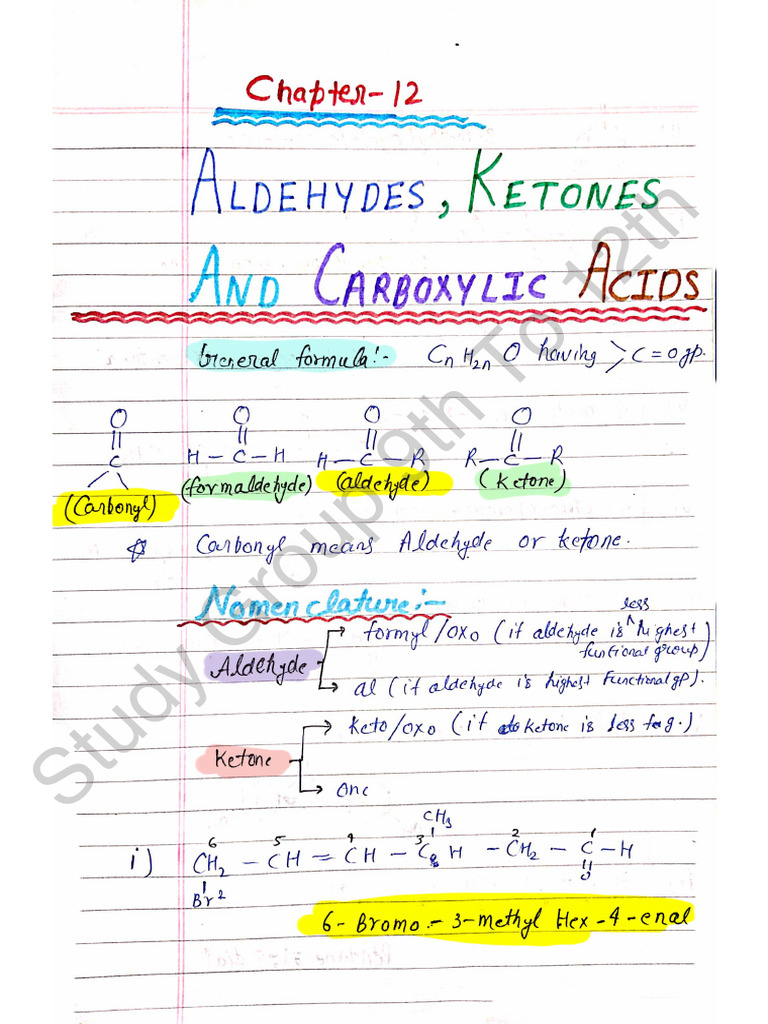 Chapter-12
ALDEHYDES, KETONES
AND CARBOXYLIC ACIDS
General formula:- CnH2nO having >C=O gp.
O O O O
|| || || ||
C H-C-H H-C-R R-C-R
(Carbonyl) (formaldehyde) (aldehyde) (Ketone)
☆ Carbonyl means Aldehyde or ketone.
Nomenclature:-
Aldehyde → formyl/oxo (if aldehyde is less highest functional group)
→ al (if aldehyde is highest Functional gp).
Ketone → Keto/oxo (if ketone is less f.g.)
→ one
CH3
6 5 4 3 2 1
i) CH2 - CH = CH - CH - CH2 - C - H
Br O
6-Bromo-3-methyl Hex-4-enal
Study Group 9th To 12th